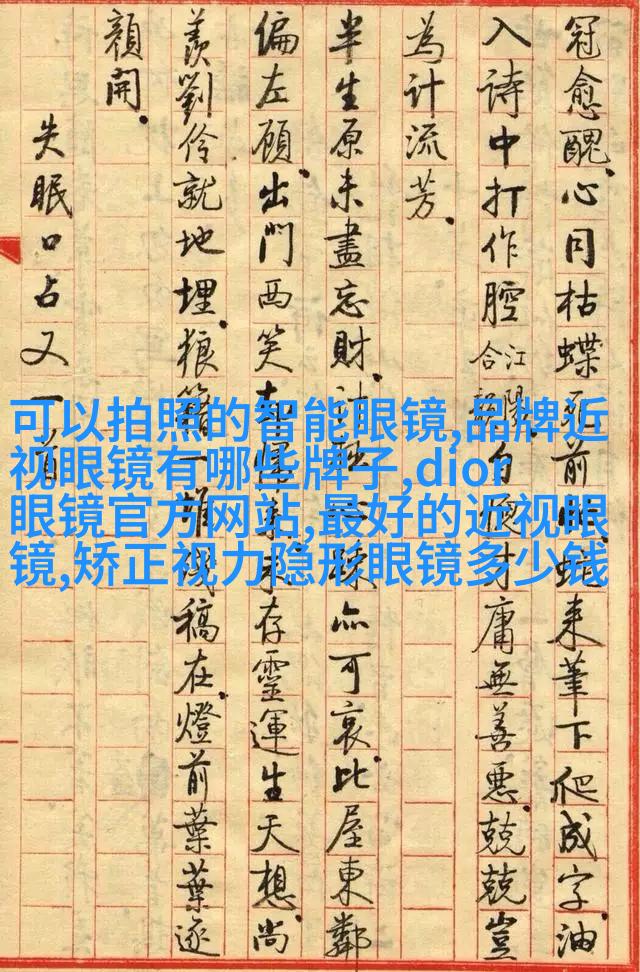 冠愈醜。心同枯蝶死前眠。来筆下爬成字。油
入詩中打作腔合江庸無善惡。兢兢豈
為計流芳。
半生原未盡忘財。計疎亦可哀。比屋東鄰
偏左顧。出門西笑却未存靈運生天想。尚
羨劉伶就地埋。狼籍一稿在。燈前葉葉逐
顏開。
失眠口占又一首
可以拍照的智能眼镜,品牌近
视眼镜有哪些牌子,dior
眼镜官方网站,最好的近视眼
镜,矫正视力隐形眼镜多少钱